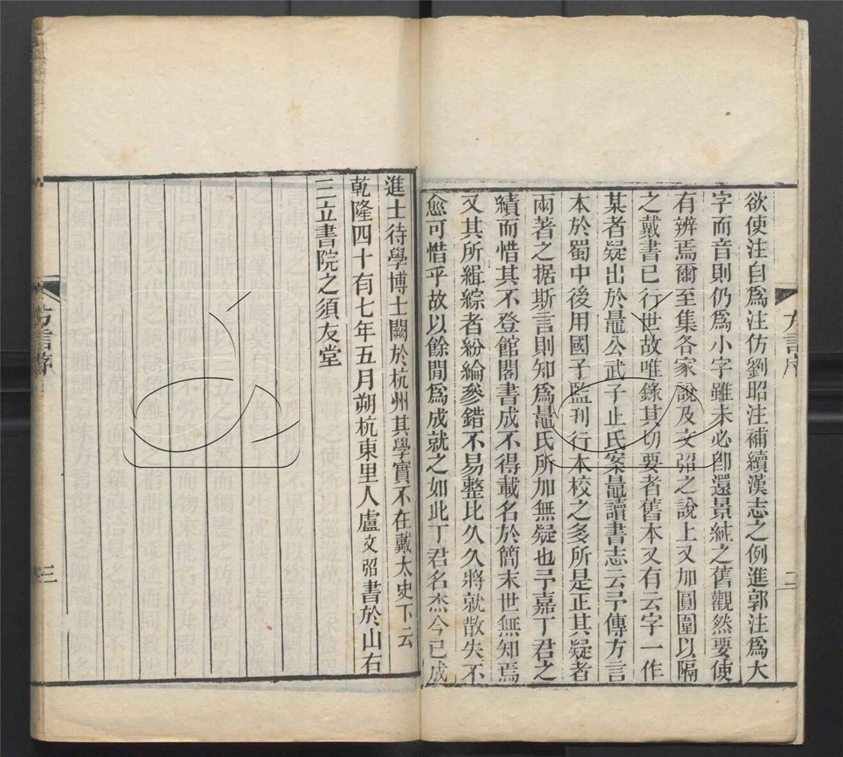 欲使注自爲注仿劉昭注補續漢志之例進郭注爲大
字而音則仍爲小字雖未必卽還景純之舊觀然要使
有辨焉爾至集各家說及文弨之說上又加圓圍以隔
之戴書已行世故唯錄其切要者舊本又有云字一作
某者疑出於鼂公武子止氏案鼂讀書志云予傳方言
本於蜀中後用國子監刊行本校之多所是正其疑者
兩著之据斯言則知爲鼂氏所加無疑也予嘉丁君之
績而惜其不登館閣書成不得載名於簡末世無知焉
又其所緝綜者紛綸參錯不易整比久久將就散失不
愈可惜乎故以餘閒爲成就之如此丁君名杰今已成
方言序
二
進士待學博士闕於杭州其學實不在戴太史下云
乾隆四十有七年五月朔杭東里人盧文弨書於山右
三立書院之須友堂
方言序
三